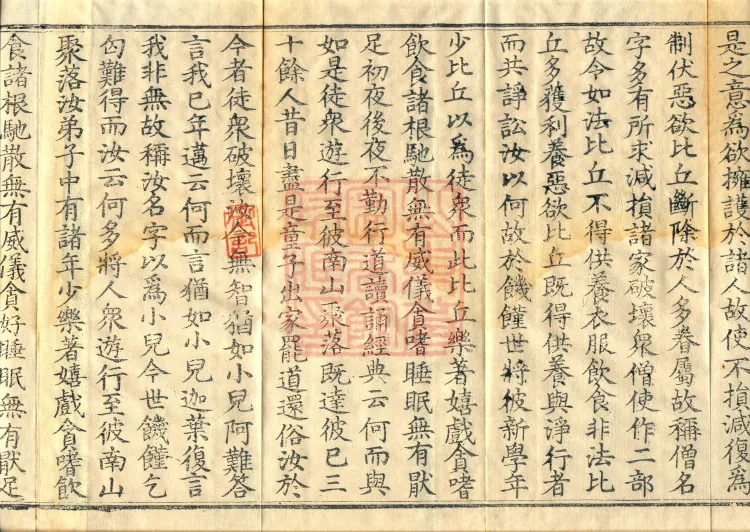 是之意為欲擁護於諸人故使不損減復為
制伏惡欲比丘斷除於人多眷屬故稱僧名
字多有所求減損諸家破壞眾僧使作二部
故令如法比丘不得供養衣服飲食非法比
丘多獲利養惡欲比丘既得供養與淨行者
而共諍訟汝以何故於饑饉世將彼新學年
少比丘以為徒眾而此比丘樂著嬉戲貪嗜
飲食諸根馳散無有威儀貪嗜睡眠無有厭
足初夜後夜不勤行道讀誦經典云何而與
如是徒眾遊行至彼南山聚落既達彼已三
十餘人昔日盡是童子出家罷道還俗汝於
今者徒眾破壞汝合無智猶如小兒阿難答
言我已年邁云何而言猶如小兒迦葉復言
我非無故稱汝名字以為小兒今世饑饉乞
匃難得而汝云何多將人眾遊行至彼南山
聚落汝弟子中有諸年少樂著嬉戲貪嗜飲
食諸根馳散無有威儀貪好睡眠無有厭足